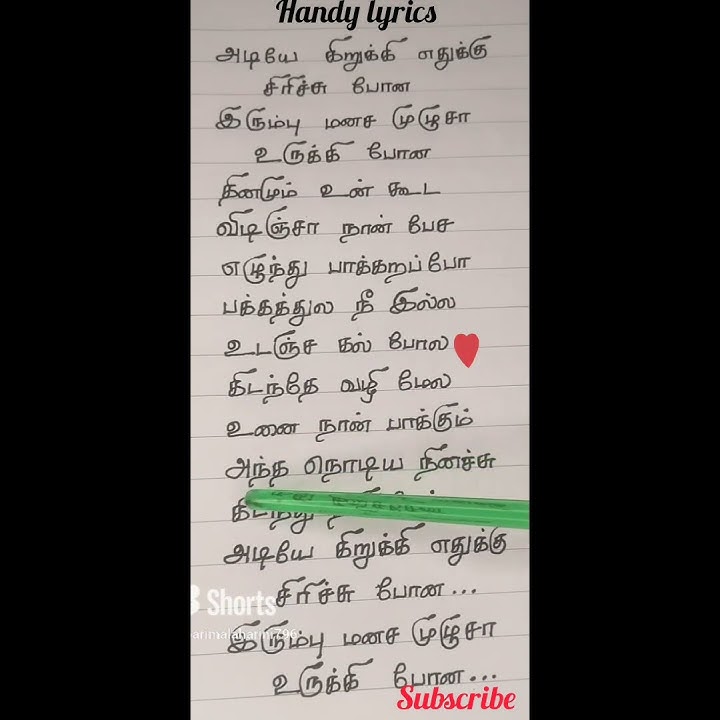 Handy lyrics
அடியே கிறுக்கி எதுக்கு
சிரிச்சு போன
இரும்பு மனச முழுசா
உருக்கி போன
தினமும் உன் கூட
விடிஞ்சா நான் பேச
எழுந்து பாக்கறப்போ
பக்கத்துல நீ இல்ல
உடஞ்ச கல் போல
கிடந்தே வழி மேல
உனை நான் பாக்கும்
அந்த நொடிய நினச்சு
அடியே கிறுக்கி எதுக்கு
சிரிச்சு போன...
Shorts
இரும்பு மனச முழுசா
உருக்கி போன...
Subscribe